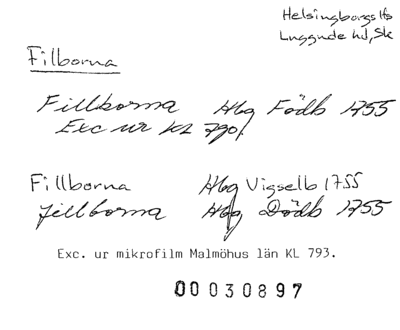 Helsingborgs lfs
Luggude hd, Sk
Filborna
Fillborna Hbg Födb 1755
Exc ur KL 790.
Fillborna Hbg Vigselb 1755
Fillborna Hbg Dödb 1755
Exc. ur mikrofilm Malmöhus län KL 793.
00030897